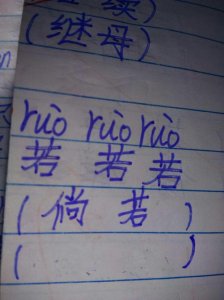 续
(继母)
ruò ruò ruò
若 若 若
(倘 若)
( )